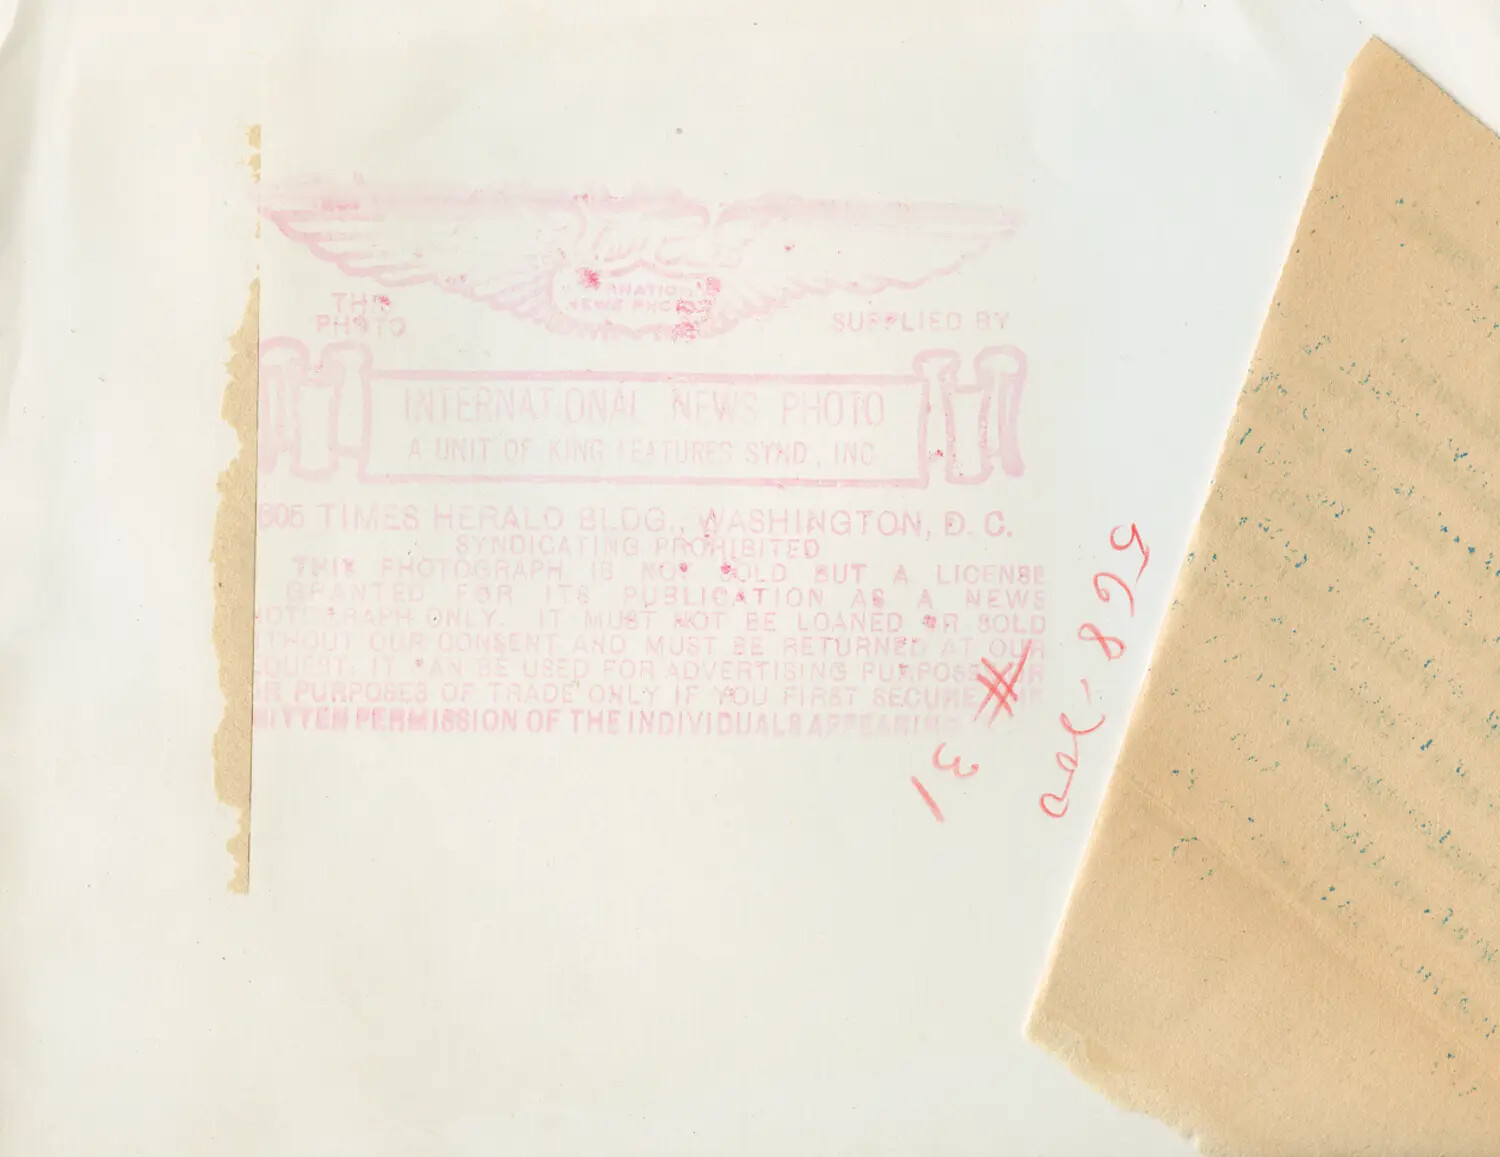 NEWS PHO
THIS
PHOTO
SUPPLIED BY
INTERNATIONAL NEWS PHOTO
A UNIT OF KING FEATURES SYND., INC
605 TIMES HERALD BLDG., WASHINGTON, D. C.
SYNDICATING PROHIBITED
THIS PHOTOGRAPH IS NOT SOLD BUT A LICENSE
GRANTED FOR ITS PUBLICATION AS A NEWS
OTOGRAPH ONLY. IT MUST NOT BE LOANED OR SOLD
THOUT OUR CONSENT AND MUST BE RETURNED AT OUR
QUEST. IT CAN BE USED FOR ADVERTISING PURPOSES OR
OR PURPOSES OF TRADE ONLY IF YOU FIRST SECURE
RITTEN PERMISSION OF THE INDIVIDUALS APPEARING
31